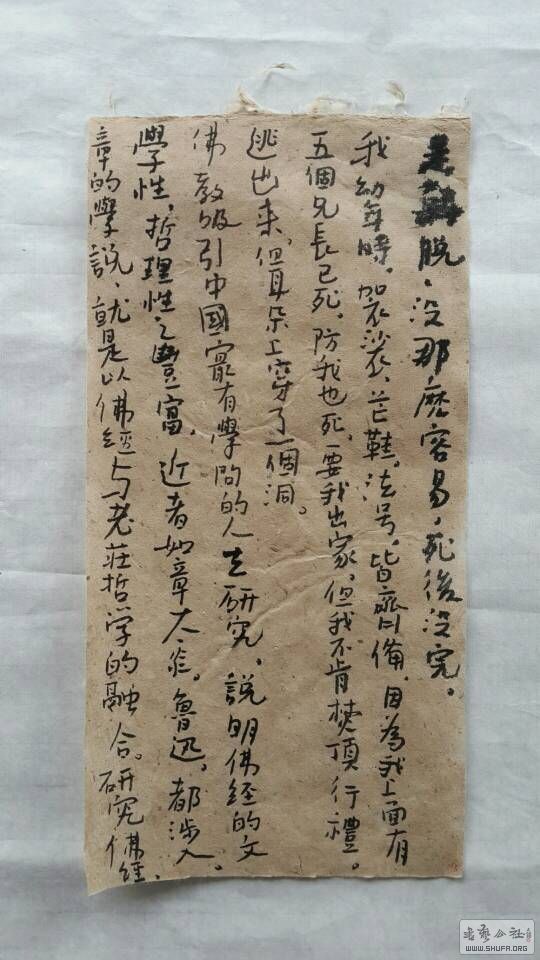 是解脱、没那麽容易，死後没完。
我幼年時，袈裟、芒鞋、法号，皆齊備，因為我上面有
五個兄長已死，防我也死，要我出家，但我不肯焚頂行禮。
逃出来，但耳朵上穿了一個洞。
佛教吸引中國最有學問的人去研究，説明佛经的文
學性，哲理性之豊富，近者如章太炎。魯迅。都涉入。
章的學説、就是以佛經与老莊哲学的融合。研究佛経，
書藝公社
WWW.SHUFA.ORG